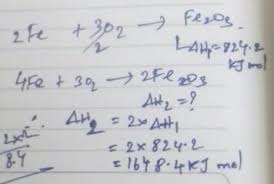 2Fe + 3O2/2 → Fe2O3
ΔH1 = 824.2
KJ mol
4Fe + 3O2 → 2Fe2O3
ΔH2 = ?
∴ ΔH2 = 2×ΔH1
= 2×824.2
= 1648.4 KJ mol
84